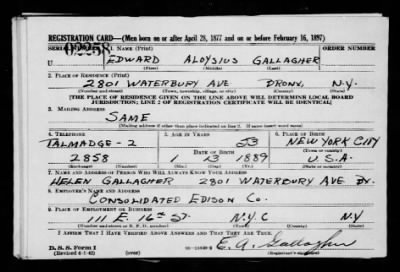 REGISTRATION CARD—(Men born on or after April 28, 1877 and on or before February 16, 1897)
SERIAL NUMBER 1. NAME (Print) ORDER NUMBER
U 2258 EDWARD ALOYSIUS GALLAGHER
(First) (Middle) (Last)
2. PLACE OF RESIDENCE (Print)
2801 WATERBURY AVE BRONX, N.Y.
(Number and street) (Town, township, village, or city) (County) (State)
[THE PLACE OF RESIDENCE GIVEN ON THE LINE ABOVE WILL DETERMINE LOCAL BOARD
JURISDICTION; LINE 2 OF REGISTRATION CERTIFICATE WILL BE IDENTICAL]
3. MAILING ADDRESS
SAME
[Mailing address if other than place indicated on line 2. If same insert word same]
4. TELEPHONE 5. AGE IN YEARS 6. PLACE OF BIRTH
TALMADGE-2 53 NEW YORK CITY
DATE OF BIRTH
2858 1 13 1889 U.S.A.
(Exchange) (Number) (Mo.) (Day) (Yr.) (State or country)
7. NAME AND ADDRESS OF PERSON WHO WILL ALWAYS KNOW YOUR ADDRESS
HELEN GALLAGHER 2801 WATERBURY AVE BX.
8. EMPLOYER'S NAME AND ADDRESS
CONSOLIDATED EDISON CO.
9. PLACE OF EMPLOYMENT OR BUSINESS
111 E. 16th ST. N.Y.C NY
(Number and street or R. F. D. number) (Town) (County) (State)
I AFFIRM THAT I HAVE VERIFIED ABOVE ANSWERS AND THAT THEY ARE TRUE.
D. S. S. Form 1
(Revised 4-1-42) (over) E. A. Gallagher